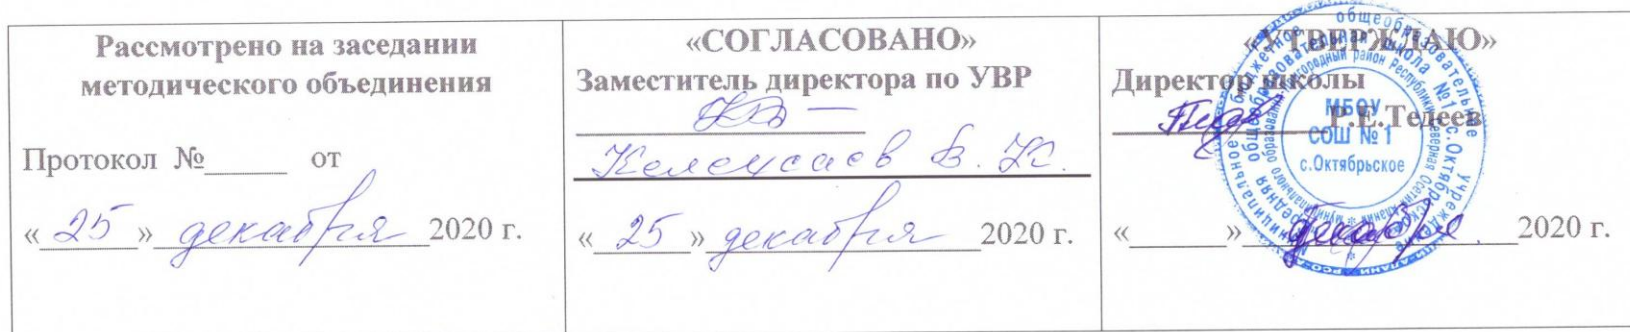 Рассмотрено на заседании
методического объединения
Протокол №______ от
«_25_»_декабря_2020 г.
«СОГЛАСОВАНО»
Заместитель директора по УВР
Келехсаев В. К.
«_25_»_декабря_2020 г.
«УТВЕРЖДАЮ»
Директор школы
Р.Е.Тедеев
«______»_декабря_2020 г.
МБОУ
СОШ №1
с.Октябрьское